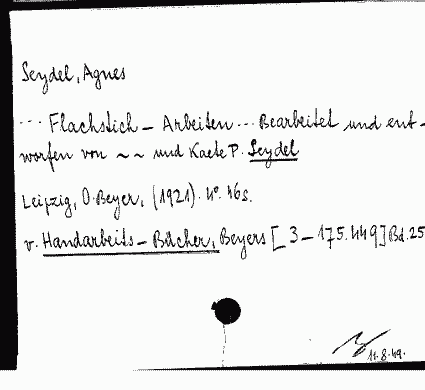 Seydel, Agnes
... Flachstich – Arbeiten ... Bearbeitet und ent-
worfen von ~ ~ und Kaete P. Seydel
Leipzig, O. Beyer, (1921). 4°. 46s.
v. Handarbeits – Bücher, Beyers [3–175.449] Bd. 25
11.8.49.